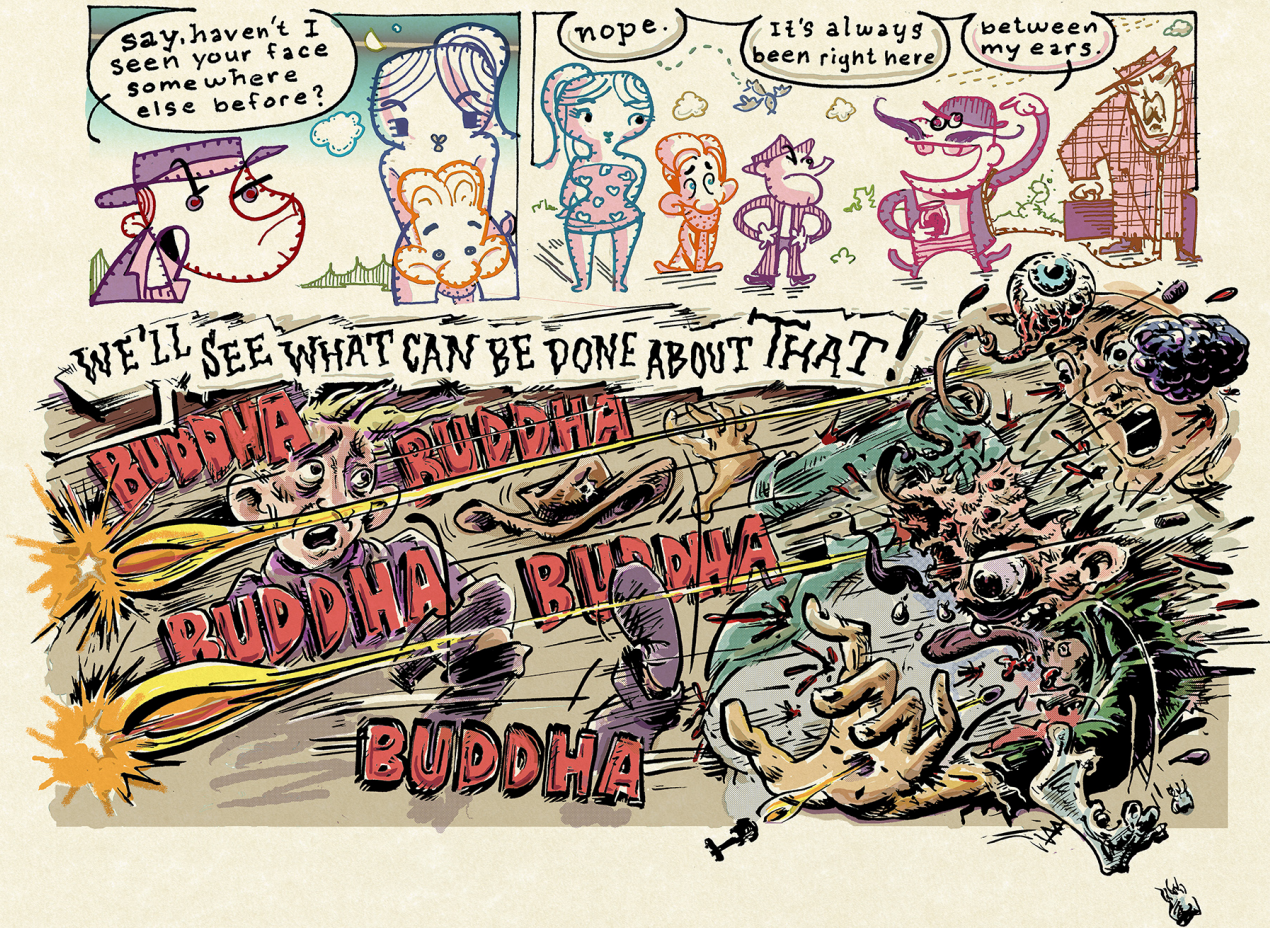 say, haven't I
seen your face
somewhere
else before?
nope.
It's always
been right here
between
my ears.
WE'LL SEE WHAT CAN BE DONE ABOUT THAT!
BUDDHA
BUDDHA
BUDDHA
BUDDHA
BUDDHA